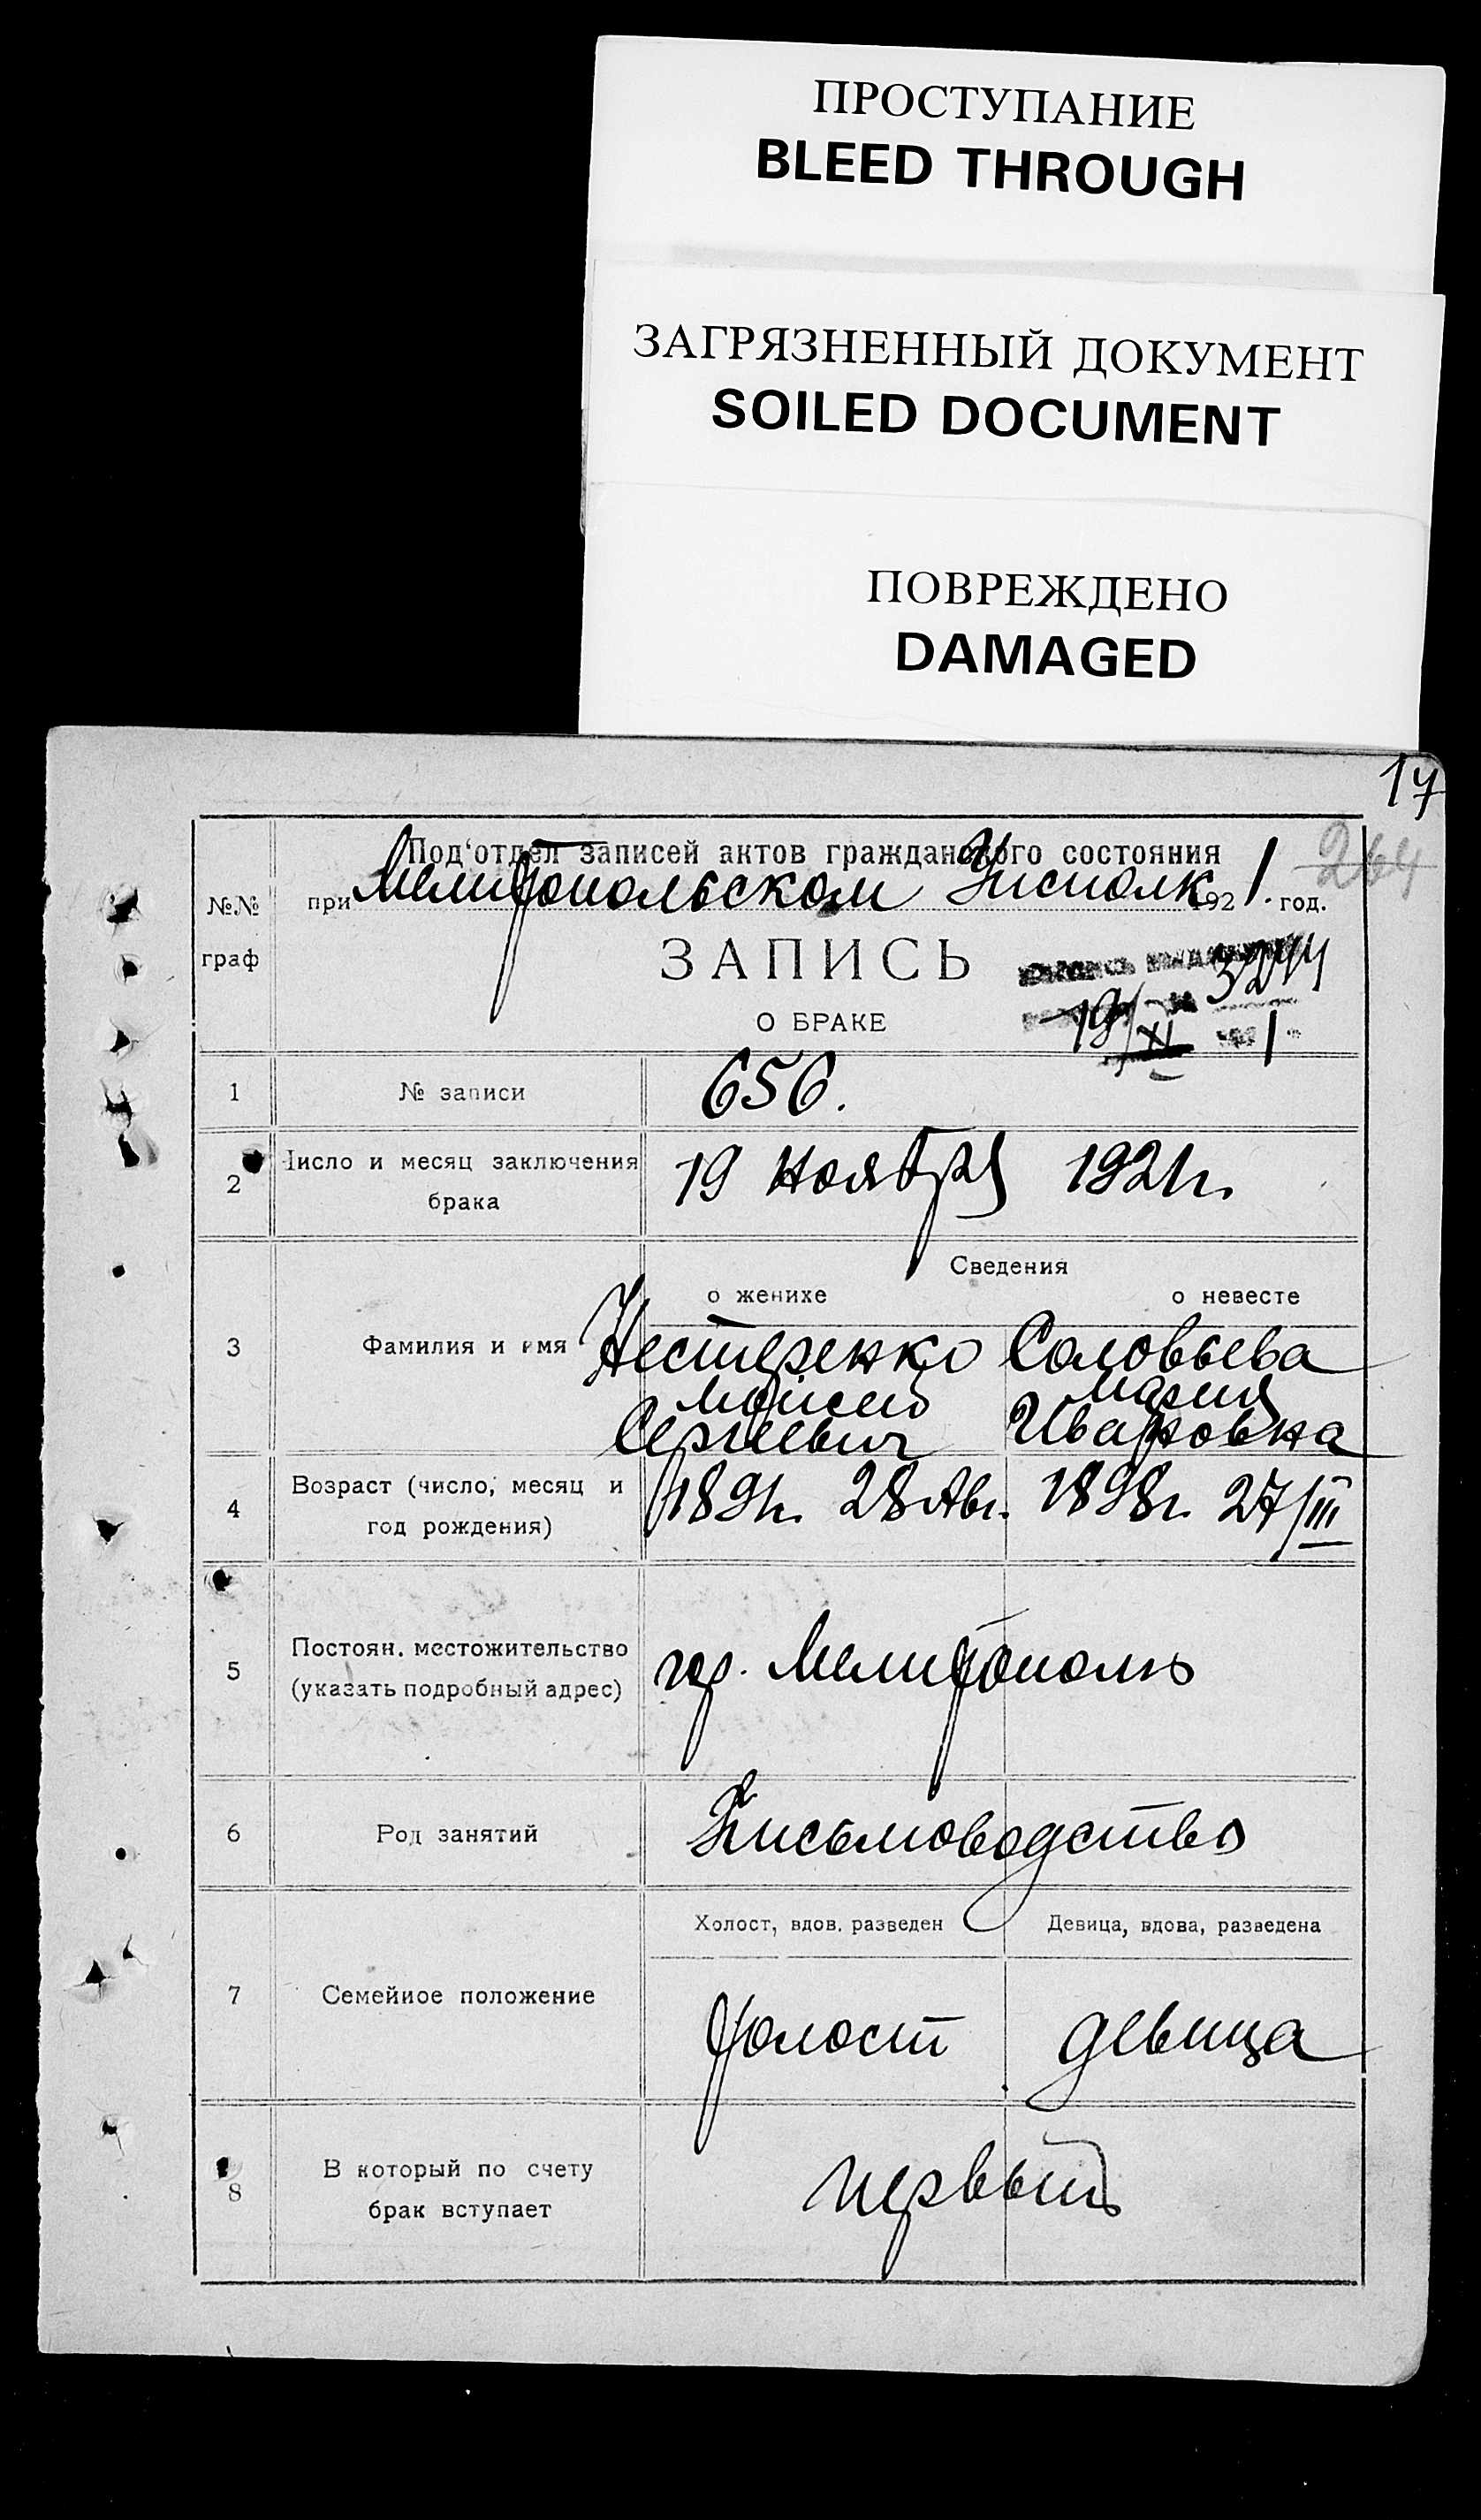 ПРОСТУПАНИЕ
BLEED THROUGH
ЗАГРЯЗНЕННЫЙ ДОКУМЕНТ
SOILED DOCUMENT
ПОВРЕЖДЕНО
DAMAGED
17
264
Под‘отдел записей актов гражданского состояния
при Мелитопольском Уисполк. 1921. год.
№№
граф
ЗАПИСЬ
О БРАКЕ
3244
19/XI 1
1 № записи 656.
2 Число и месяц заключения
брака
19 Ноября 1921г.
Сведения
о женихе о невесте
3 Фамилия и имя Нестеренко Соловьева
Моисей Мария
Сергеевич Ивановна
4 Возраст (число, месяц и
год рождения)
1891г. 28 Авг. 1898г. 27/III
5 Постоян. местожительство
(указать подробный адрес)
гор. Мелитополь
6 Род занятий Письмоводство
Холост, вдов. разведен Девица, вдова, разведена
7 Семейное положение
Холост девица
8 В который по счету
брак вступает
первый